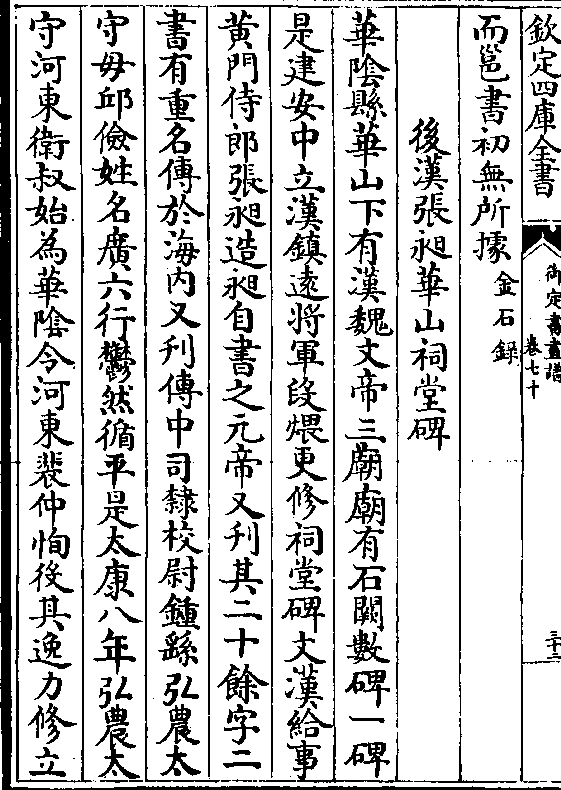 欽定四庫全書
御定書畫譜
卷七十
三十二
而邕書初無所據金石錄
後漢張昶華山祠堂碑
華陰縣華山下有漢魏文帝三廟廟有石闕數碑一碑
是建安中立漢鎮遠將軍段煨更修祠堂碑文漢給事
黃門侍郎張昶造昶自書之元帝又刋其二十餘字二
書有重名傳於海内又刋傳中司隸校尉鍾繇弘農太
守毋邱儉姓名廣六行鬱然循平是太康八年弘農太
守河東衛叔始為華陰令河東裴仲恂後其逸力修立